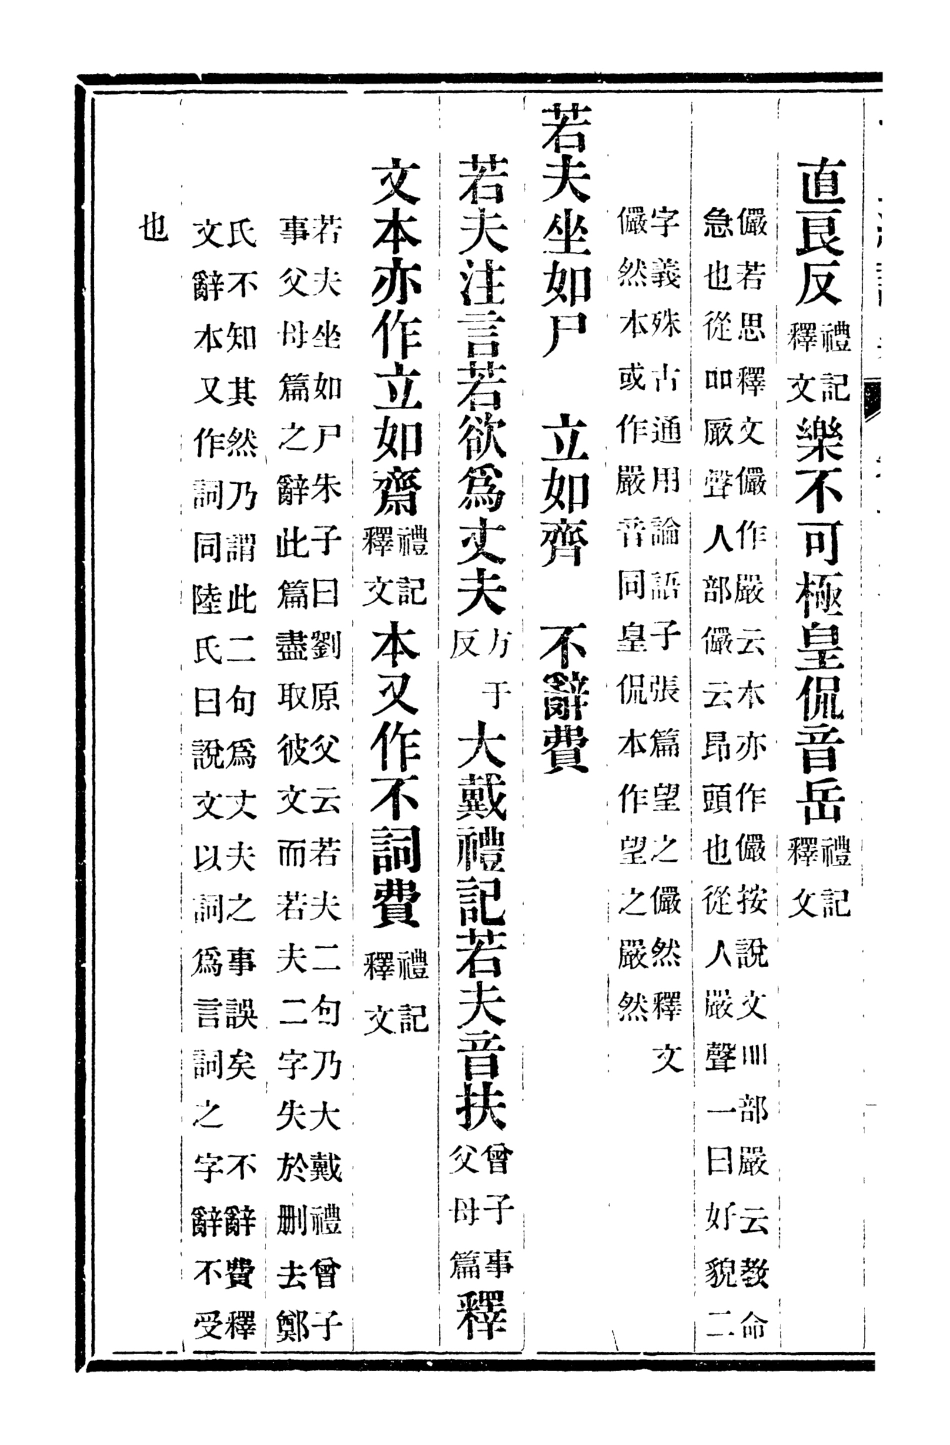 直㫐反禮記釋文樂不可極皇侃音岳禮記釋文
儼若思釋文儼作嚴云本亦作儼按說文吅部嚴云教命
急也從吅厰聲人部儼云昂頭也從人嚴聲一曰好貌二
字義殊古通用論語子張篇望之儼然釋文
儼然本或作嚴音同皇侃本作望之嚴然
若夫坐如尸　立如齊　不辭費
若夫注言若欲爲丈夫方于反大戴禮記若夫音扶曾子事父母篇釋
文本亦作立如齋禮記釋文本又作不詞費禮記釋文
若夫坐如尸朱子曰劉原父云若夫二句乃大戴禮曾子
事父母篇之辭此篇盡取彼文而若夫二字失於刪去鄭
氏不知其然乃謂此二句爲丈夫之事誤矣　不辭費釋
文辭本又作詞同陸氏曰說文以詞爲言詞之字辭不受
也